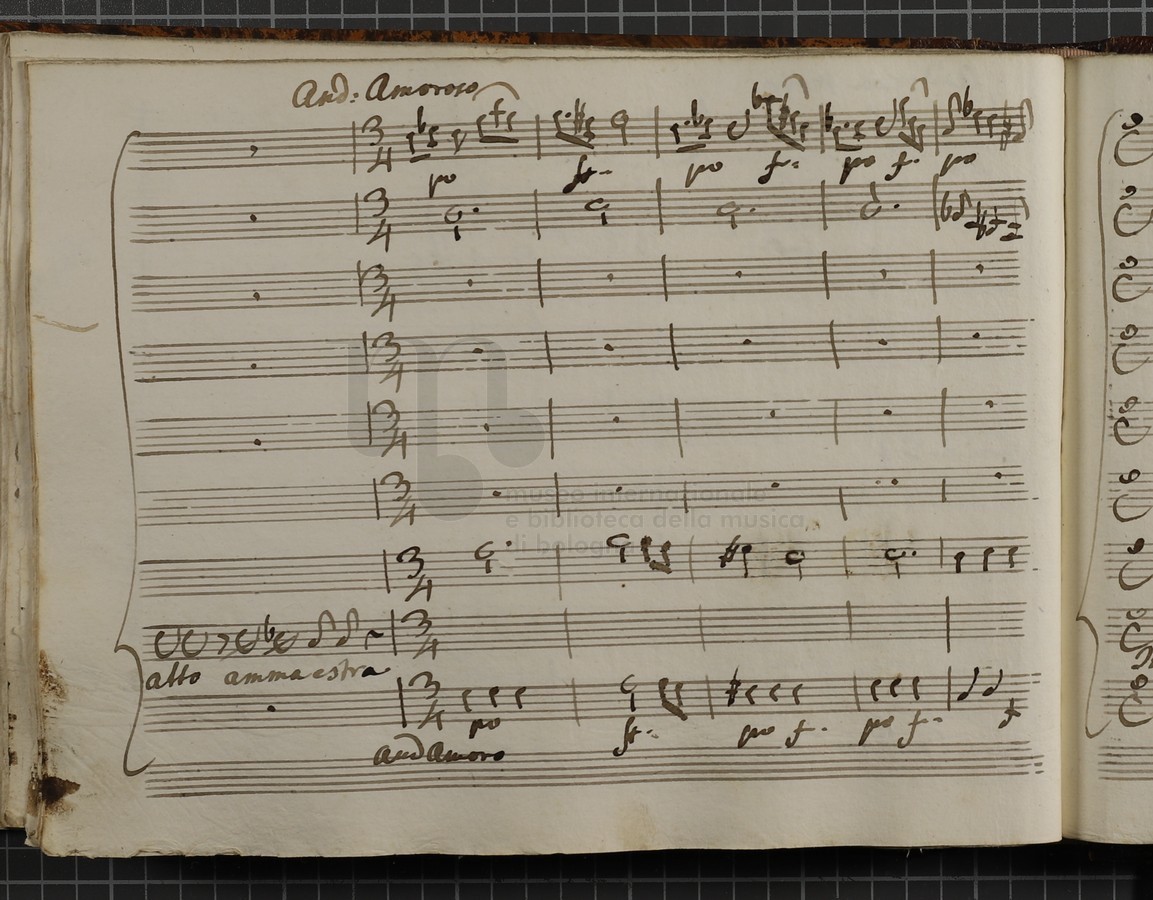 And: Amoroso
3 4
po f.. po f. po f. po
3 4
3 4
3 4
3 4
museo internazionale
e biblioteca della musica
di bologna
3 4
3 4
3 4
alto ammaestra
3 4
po f.. po f. po f. f
And Amoro